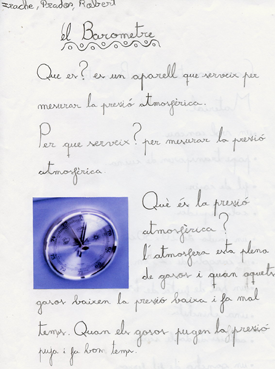 Irache, Prados, Robert
èl Barometre
Que es? es un aparell que serveix per
mesurar la presió atmosfèrica.
Per que serveix? per mesurar la presió
atmosfèrica
Què és la presió
atmosfèrica?
l'atmosfera esta plena
de gasos i quan aquets
gasos baixen la presió baixa i fa mal
temps. Quan els gasos pugen la presió
puja i fa bon temps.